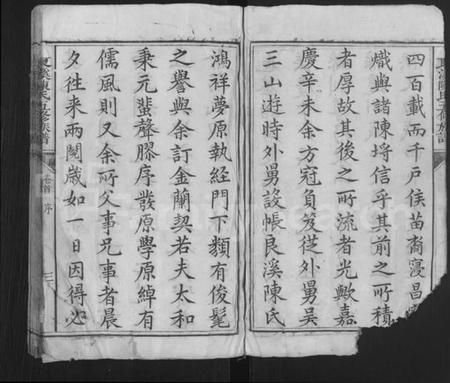 四百載而千戶侯苗裔寖昌
熾與諸陳埒信乎其前之所積
者厚故其後之所流者光歟嘉
慶辛未余方冠負笈從外舅吳
三山遊時外舅設帳良溪陳氏
鴻祥夢原執經門下類有俊髦
之譽與余訂金蘭契若夫太和
秉元蜚聲膠庠發原學原綽有
儒風則又余所父事兄事者晨
夕往來兩閱歲如一日因得必
卷首 序
三